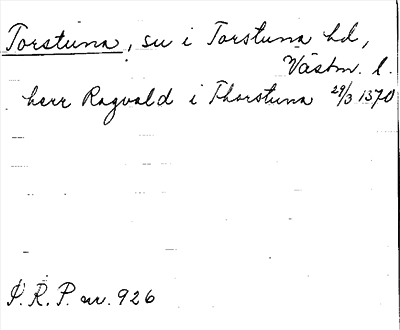 Torstuna, su i Torstuna hd,
Västm. l.
herr Ragvald i Thorstuna 29/3 1370
P.R.P. nr. 926